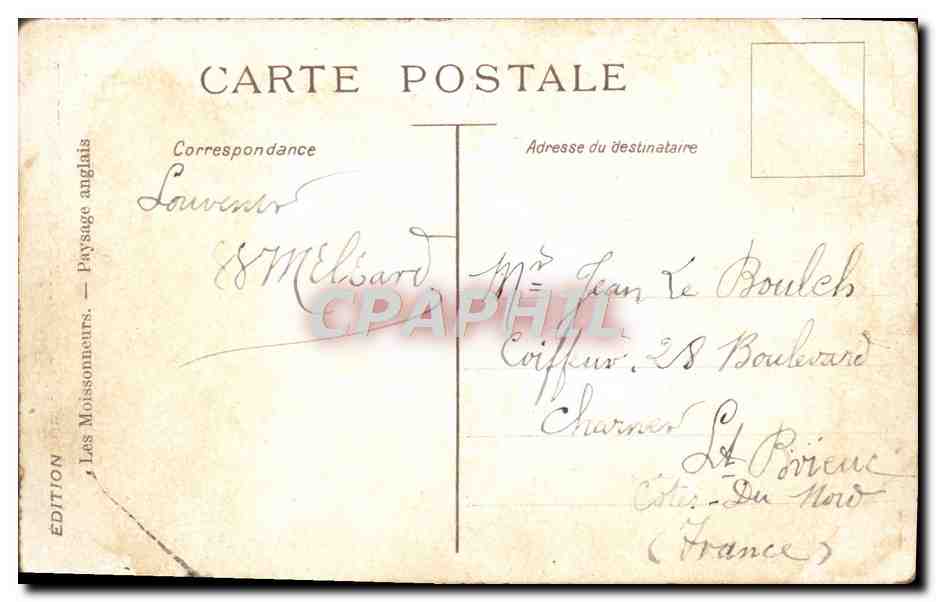 CARTE POSTALE
Correspondance
Adresse du destinataire
Souvenir
Mr Jean Le Boulch
Coiffeur. 28 Boulevard
Charner St Brieuc
Côtes-Du Nord
(France)
EDITION
Les Moissonneurs. — Paysage anglais
CPAPHIL